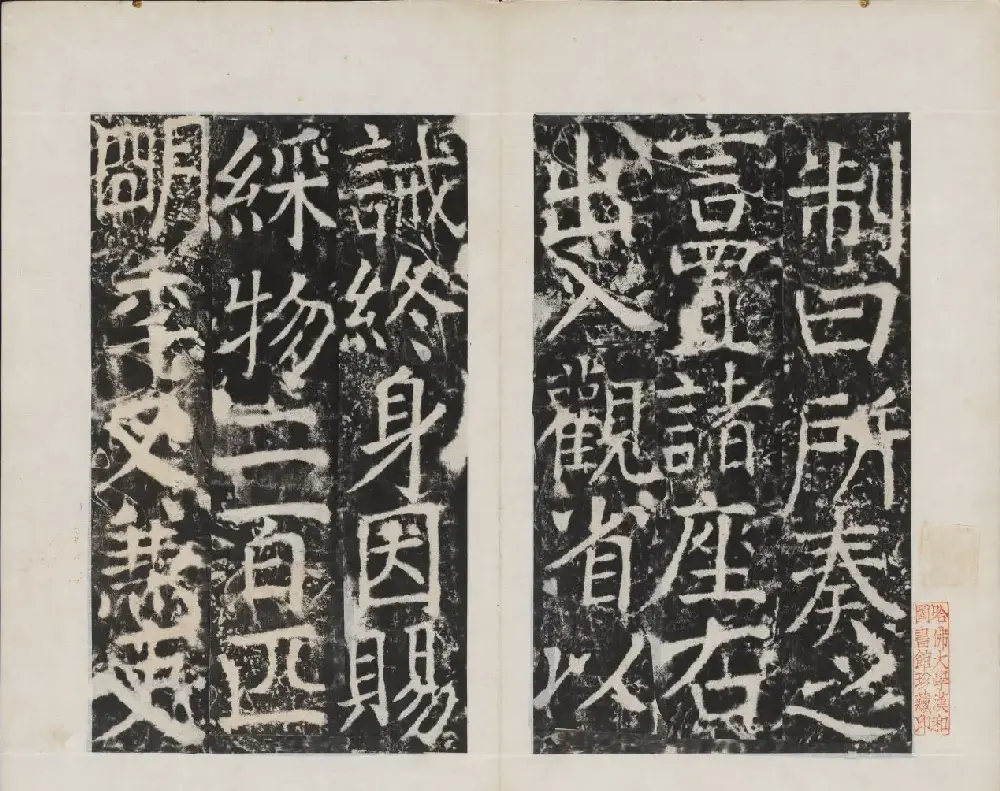 制曰所奏之
言置諸座右
出入觀省以
誡終身因賜
綵物三百匹
明秊又更
哈佛大學漢和
圖書館珍藏印